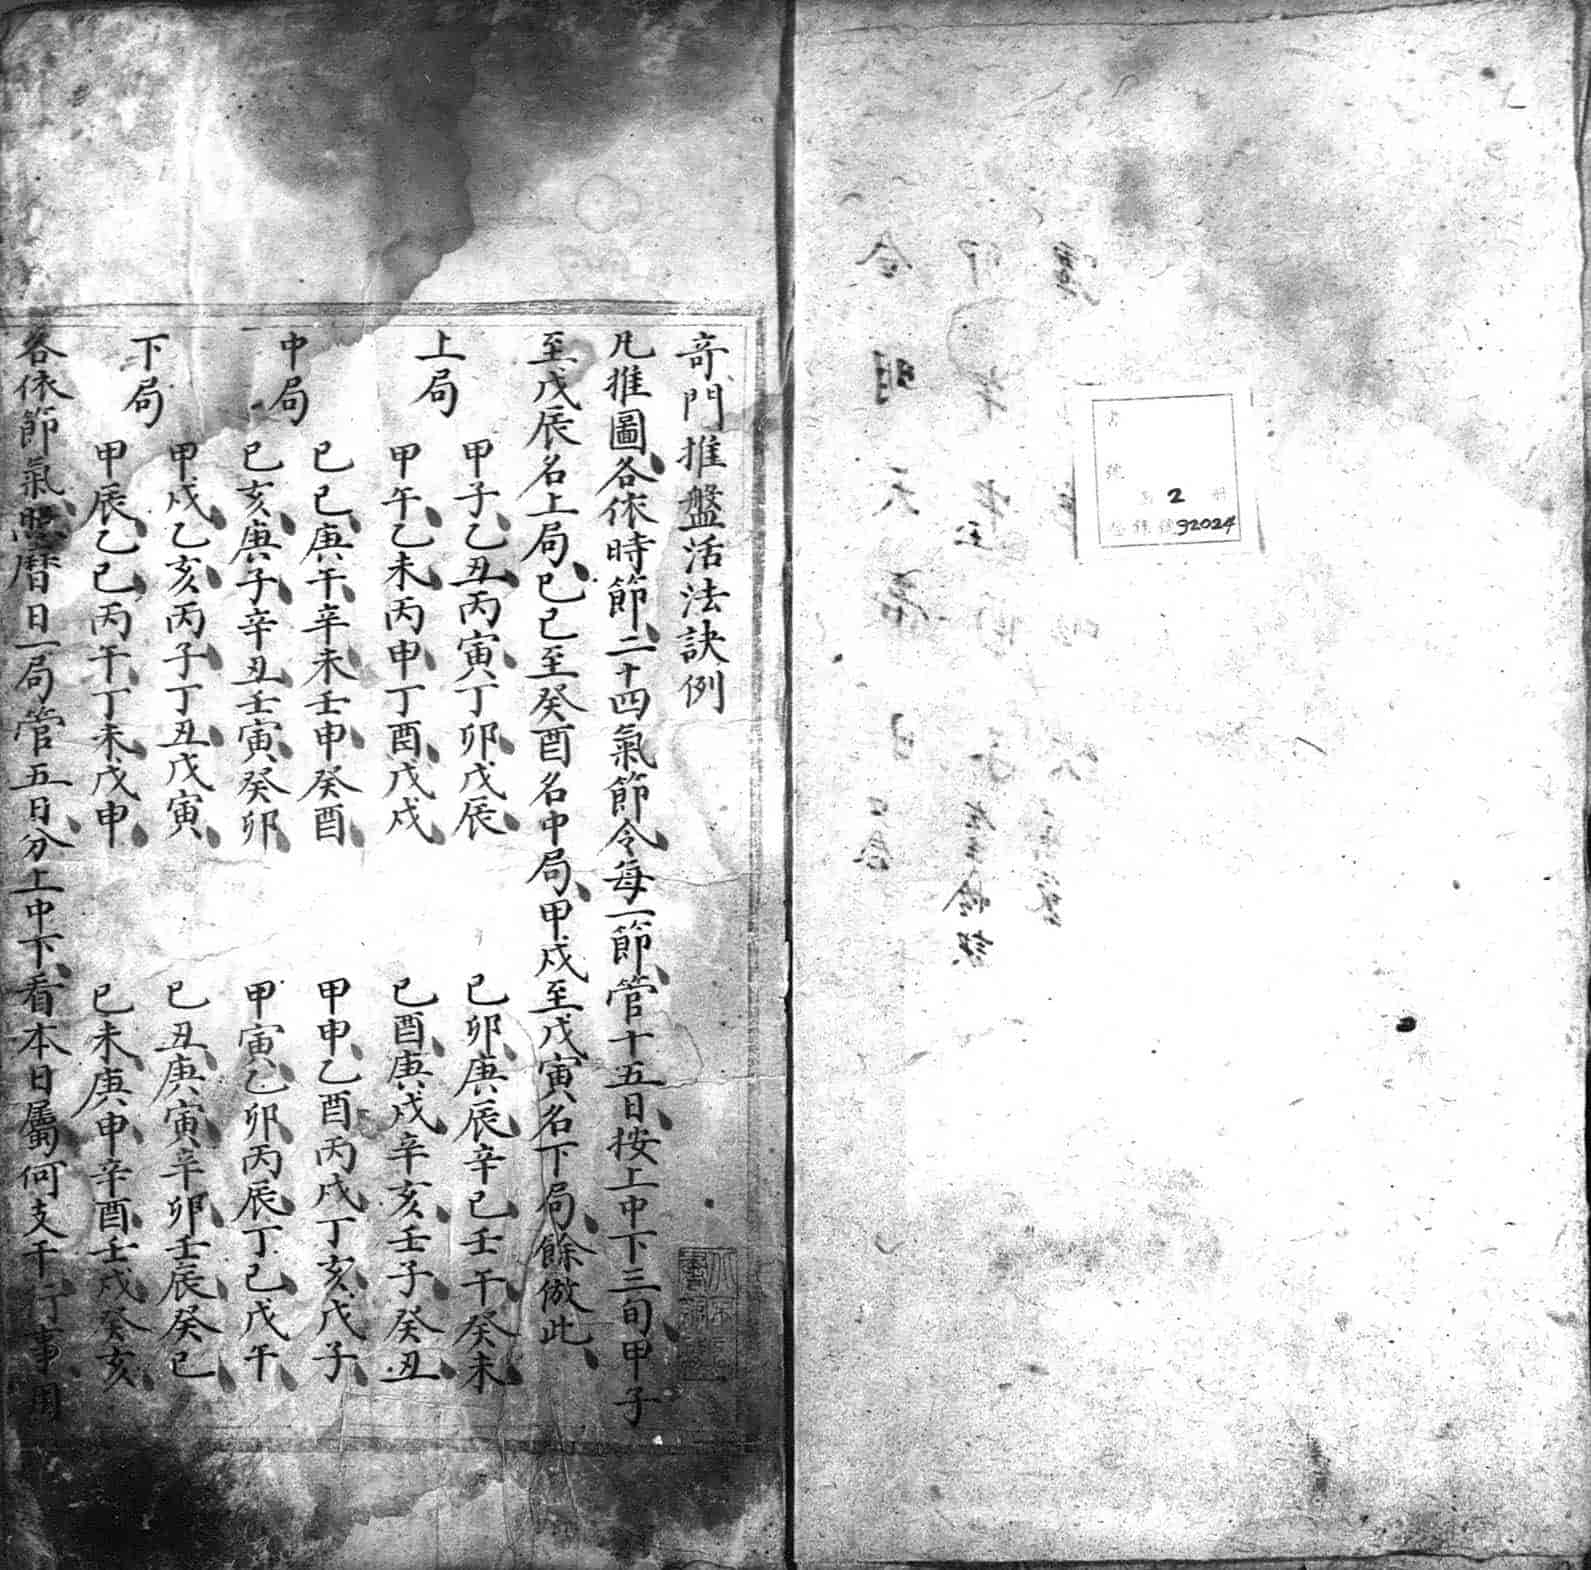 奇門推盤活法訣例
凡推圖各依時節二十四氣節令每一節管十五日按上中下三旬甲子
至戊辰名上局己巳至癸酉名中局甲戌至戊寅名下局餘倣此
上局
甲子乙丑丙寅丁卯戊辰 己卯庚辰辛巳壬午癸未
甲午乙未丙申丁酉戊戌 己酉庚戌辛亥壬子癸丑
中局
己巳庚午辛未壬申癸酉 甲申乙酉丙戌丁亥戊子
己亥庚子辛丑壬寅癸卯 甲寅乙卯丙辰丁巳戊午
下局
甲戌乙亥丙子丁丑戊寅 己丑庚寅辛卯壬辰癸巳
甲辰乙巳丙午丁未戊申 己未庚申辛酉壬戌癸亥
各依節氣照曆日一局管五日分上中下看本日屬何支干行事用
2
92024